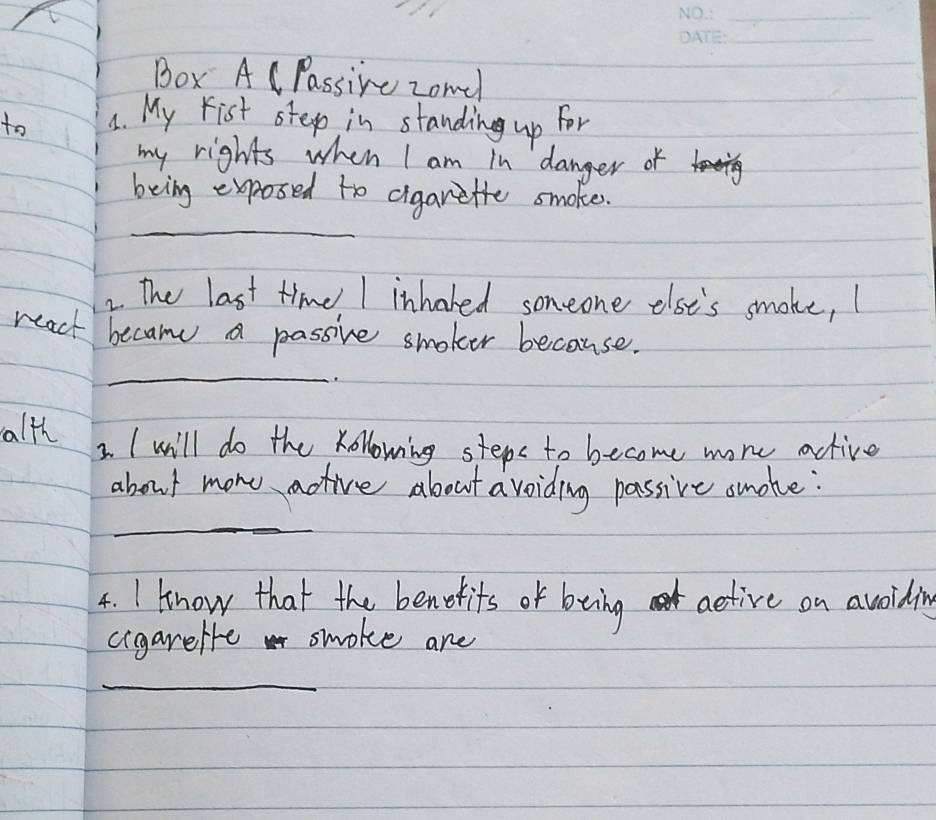 NO.:
DATE:
Box A (Passive zone)
to
1. My Fist step in standing up for
my rights when I am in danger of
being exposed to cigarette smoke.
2. The last time I inhaled someone else's smoke, I
react
became a passive smoker because.
alth
3. I will do the Following steps to become more active
about more active about avoiding passive smoke:
4. I know that the benefits of being active on avoiding
cigarette smoke are